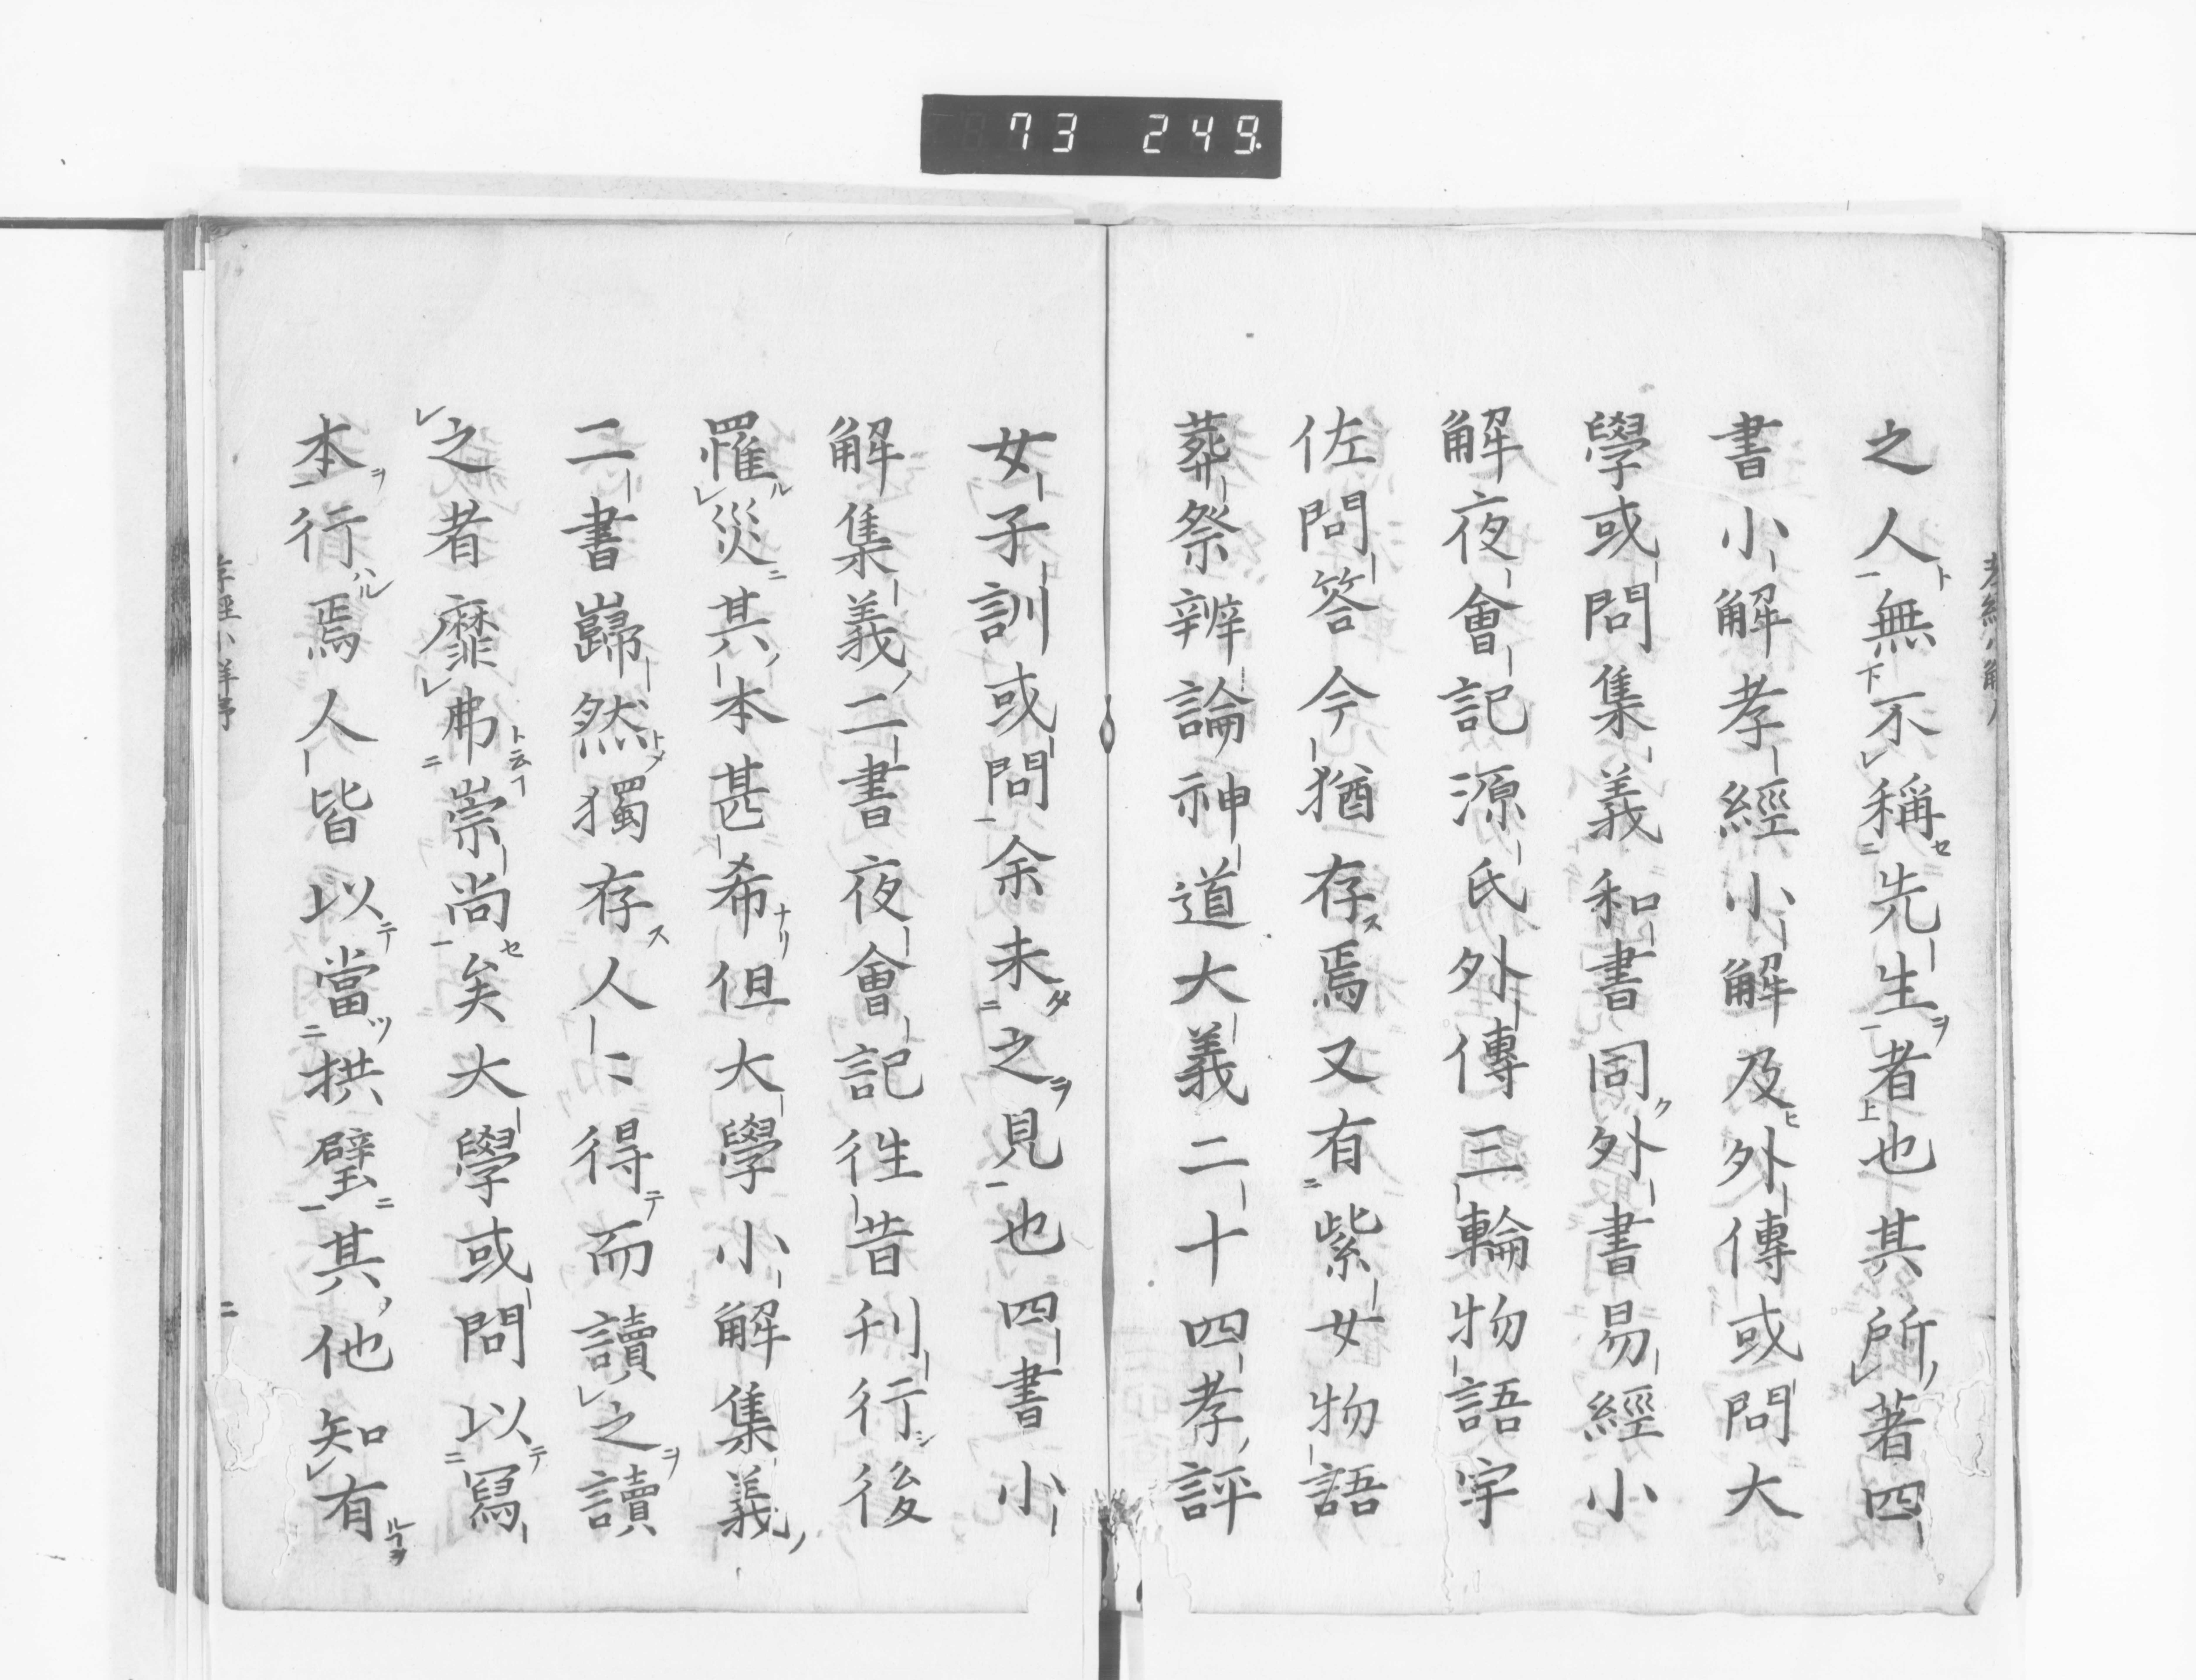 73 249
之人無不稱先生者也其所著四
書小解孝經小解及外傳或問大
學或問集義和書同外書易經小
解夜會記源氏外傳三輪物語宇
佐問答今猶存焉又有紫女物語
葬祭辨論神道大義二十四孝評
女子訓或問余未之見也四書小
解集義二書夜會記徃昔刊行後
罹災其本甚希但大學小解集義
二書巋然獨存人〻得而讀之讀
之者靡弗崇尚矣大學或問以寫
本行焉人皆以當拱璧其他知有
二